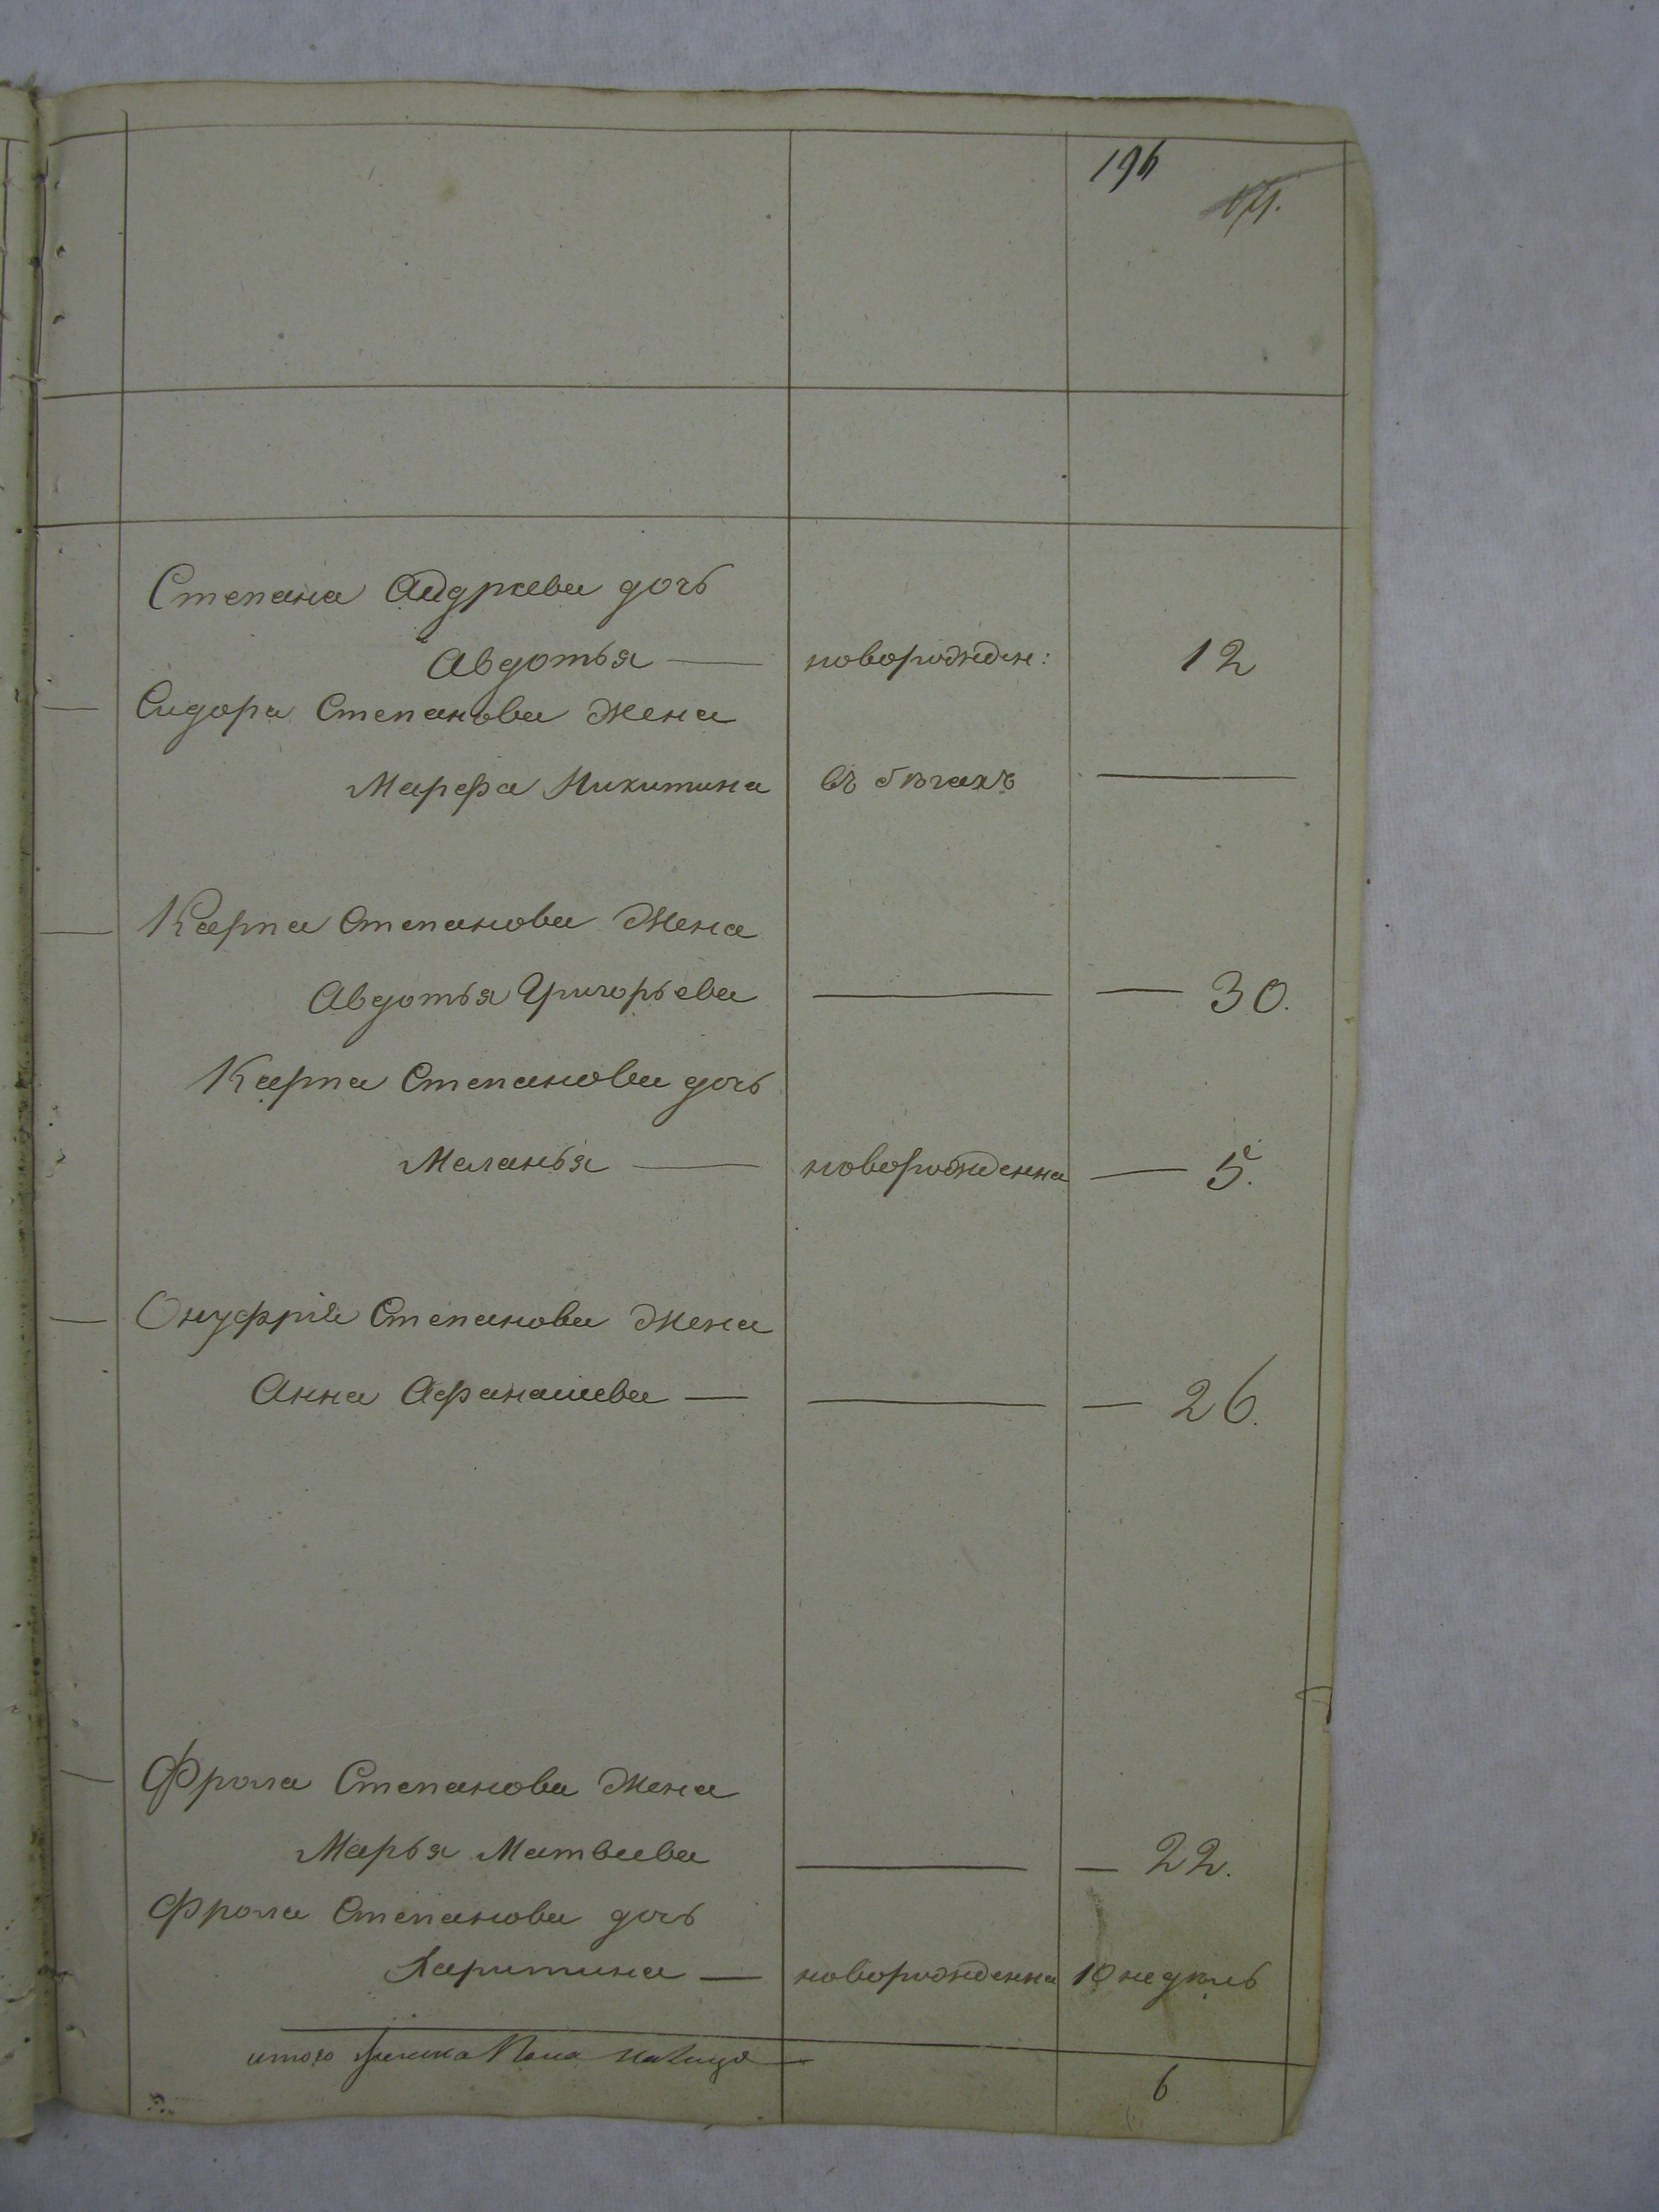 196
Степана Андреева дочь
Авдотья — новорожден: 12
Сидора Степанова жена
Марфа Никитина въ бѣгахъ —
Карпа Степанова жена
Авдотья Григорьева — — 30.
Карпа Степанова дочь
Маланья — новорожденна — 5.
Онуфрія Степанова жена
Анна Афанасиева — — — 26.
Фрола Степанова жена
Марья Матвиева — — 22.
Фрола Степанова дочь
Харитина — новорожденна 10 недѣль
итого женска пола налицо — 6